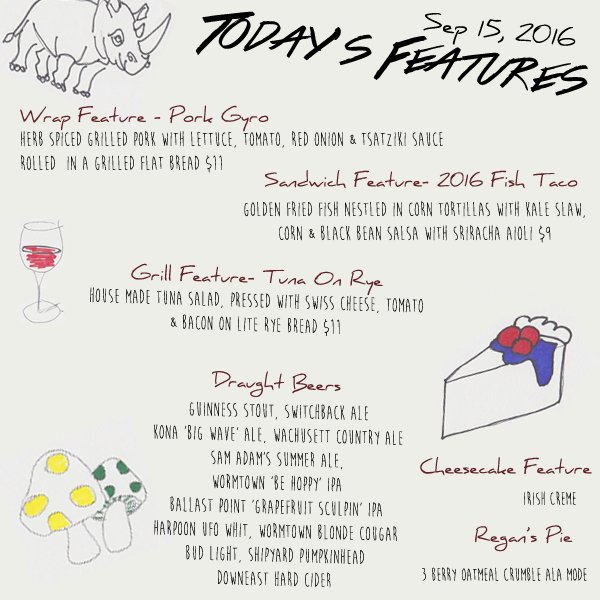 Sep 15, 2016
TODAY'S FEATURES
Wrap Feature - Pork Gyro
HERB SPICED GRILLED PORK WITH LETTUCE, TOMATO, RED ONION & TSATZIKI SAUCE
ROLLED IN A GRILLED FLAT BREAD $11
Sandwich Feature- 2016 Fish Taco
GOLDEN FRIED FISH NESTLED IN CORN TORTILLAS WITH KALE SLAW,
CORN & BLACK BEAN SALSA WITH SRIRACHA AIOLI $9
Grill Feature- Tuna On Rye
HOUSE MADE TUNA SALAD, PRESSED WITH SWISS CHEESE, TOMATO
& BACON ON LITE RYE BREAD $11
Draught Beers
GUINNESS STOUT, SWITCHBACK ALE
KONA 'BIG WAVE' ALE, WACHUSETT COUNTRY ALE
SAM ADAM'S SUMMER ALE,
WORMTOWN 'BE HOPPY' IPA
BALLAST POINT 'GRAPEFRUIT SCULPIN' IPA
HARPOON UFO WHIT, WORMTOWN BLONDE COUGAR
BUD LIGHT, SHIPYARD PUMPKINHEAD
DOWNEAST HARD CIDER
Cheesecake Feature
IRISH CREME
Regan's Pie
3 BERRY OATMEAL CRUMBLE ALA MODE